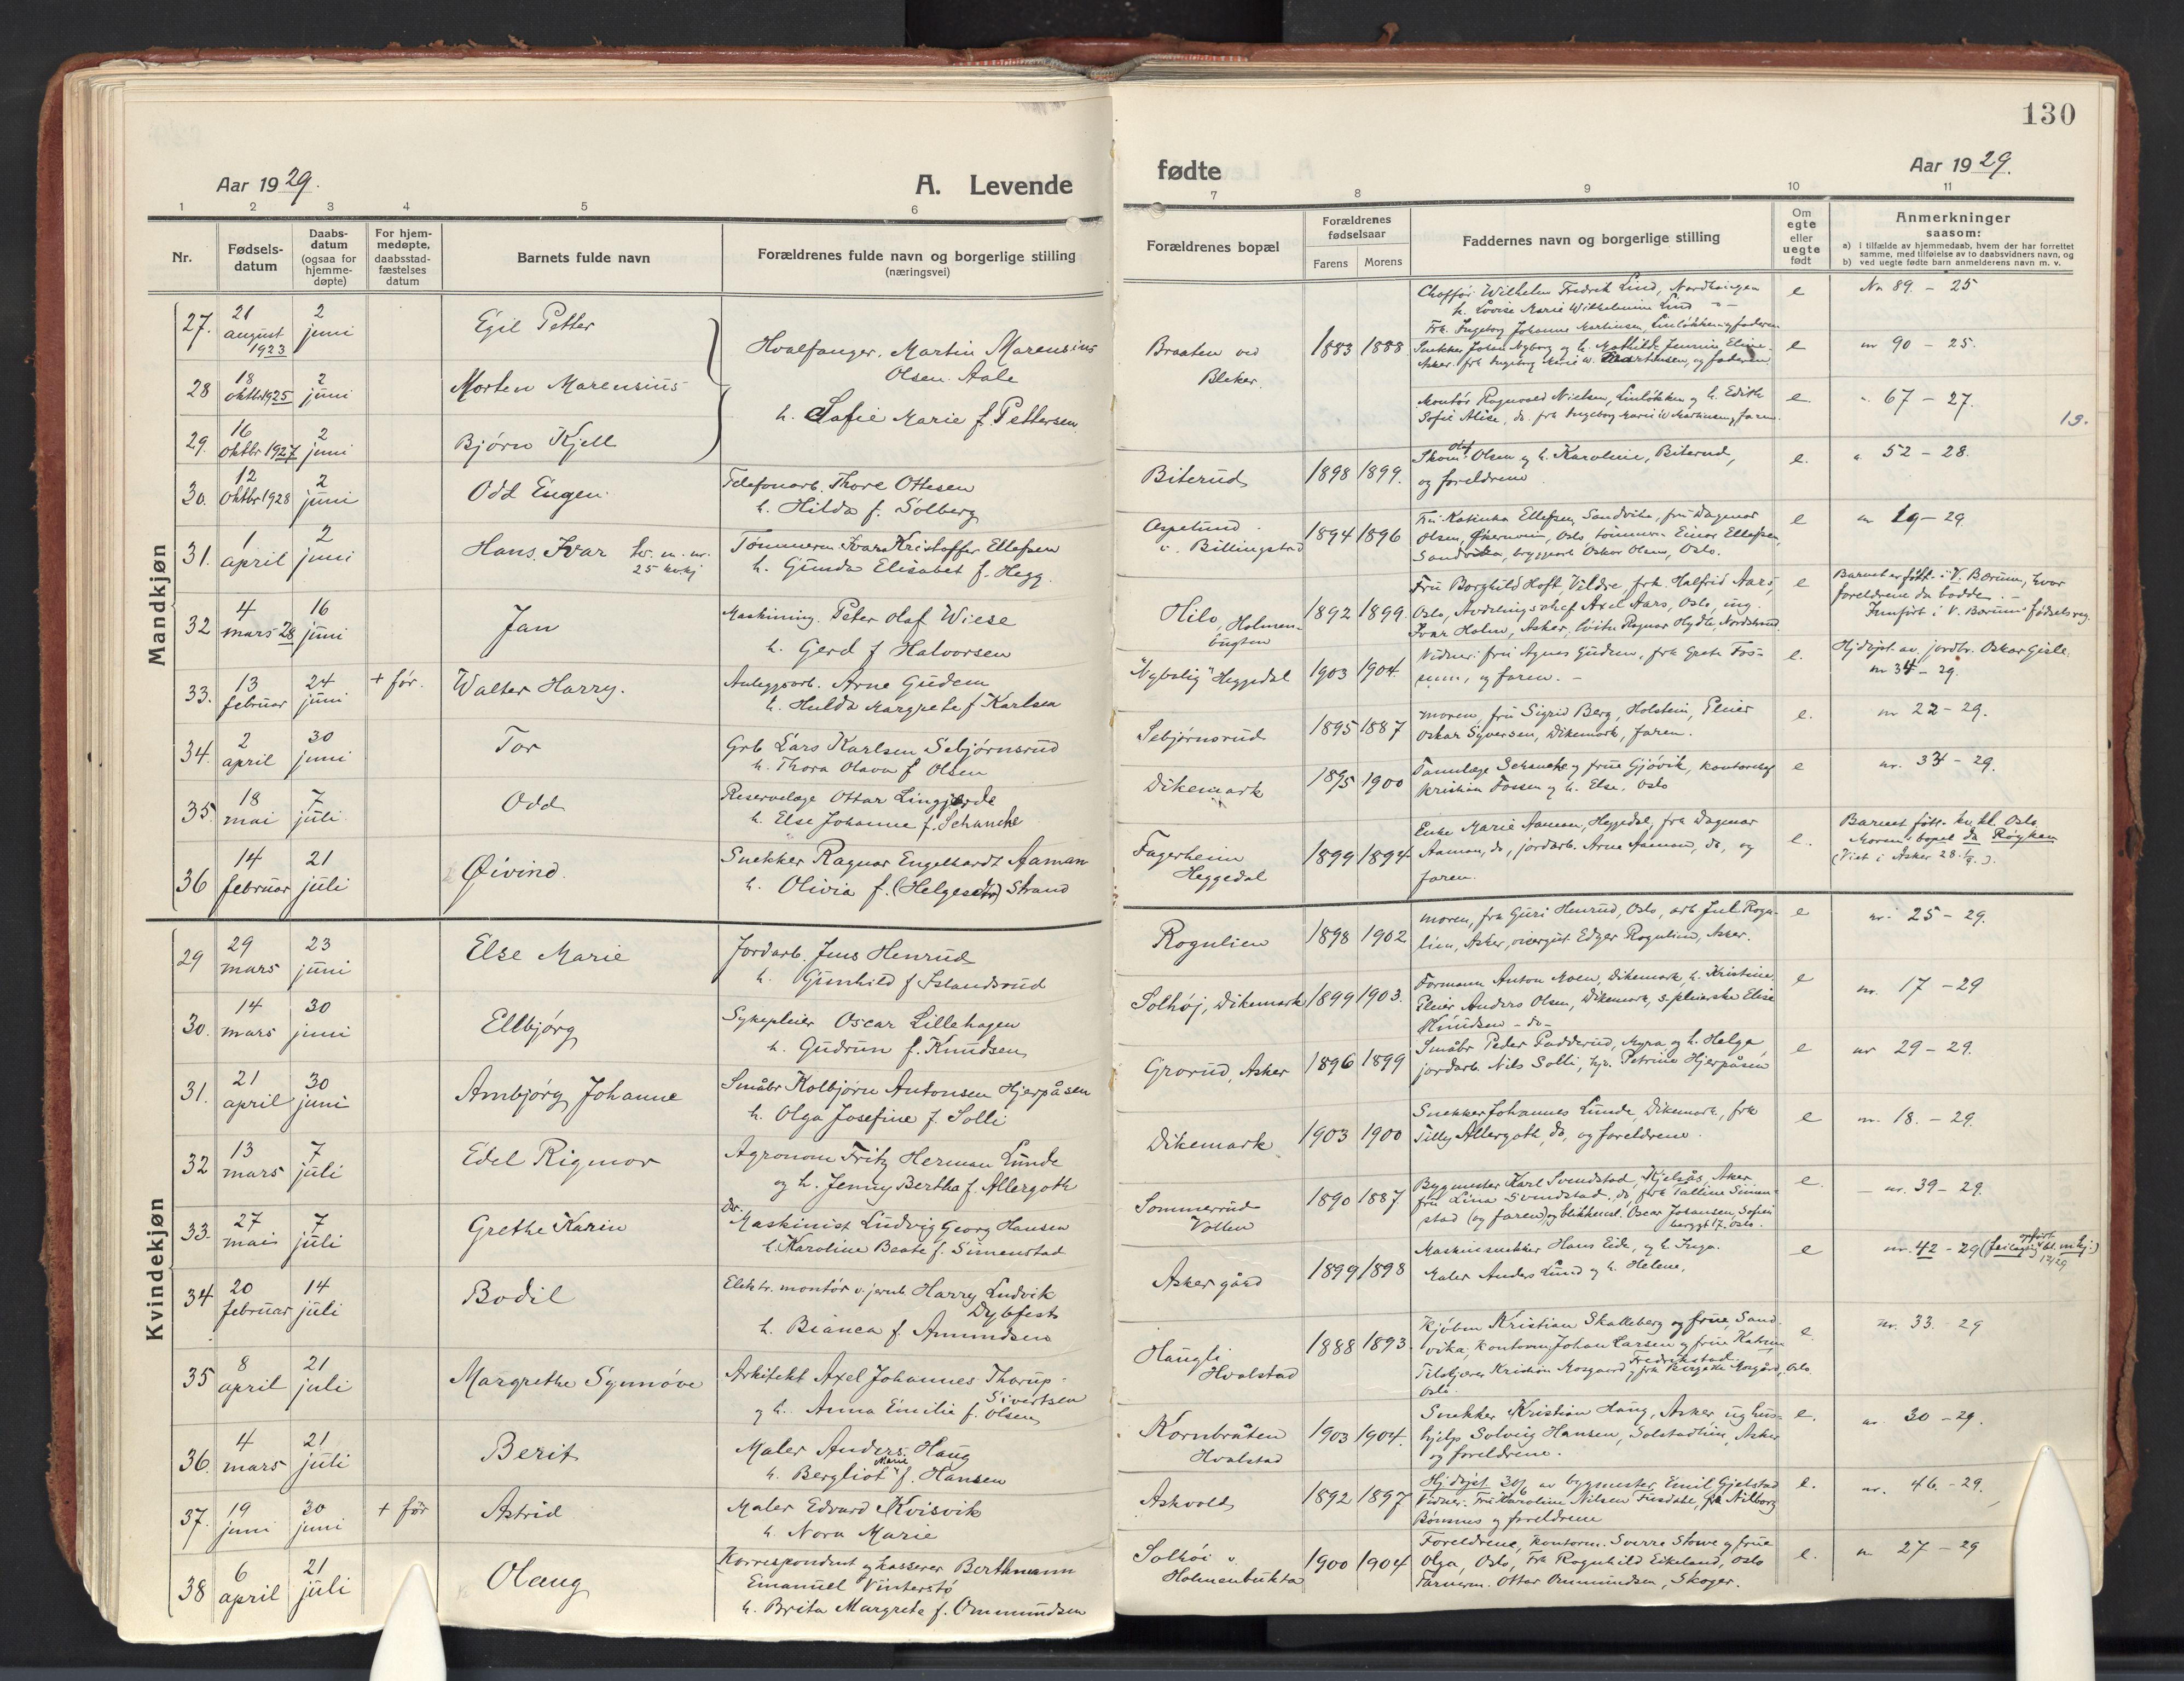 130
Aar 1929.
A. Levende
fødte
Aar 1929.
1 2 3 4 5 6
7 8 9 10 11
Nr.
Fødsels-
datum
Daabs-
datum
(ogsaa for
hjemme-
døpte)
For hjem-
medøpte,
daabsstad-
fæstelses
datum
Barnets fulde navn
Forældrenes fulde navn og borgerlige stilling
(næringsvei)
Forældrenes bopæl
Forældrenes
fødselsaar
Farens
Morens
Faddernes navn og borgerlige stilling
Om
egte
eller
uegte
født
Anmerkninger
saasom:
a) i tilfælde av hjemmedaab, hvem der har forrettet
samme, med tilføielse av to daabsvidners navn, og
b) ved uegte fødte barn anmelderens navn m. v.
Mandkjøn
27. 21 august 1923 2 juni Egil Petter
Hvalfanger. Martin Marensius
Olsen Aale
h. Sofie Marie f. Pettersen
Braaten ved
Bleker.
1883 1888
Chafför Wilhelm Fredrik Lind, Nordhaugen
h. Lovise Marie Wilhelmine Lind
Frk. Ingeborg Johanne Martinsen, Linløkken og faderen
e No 89. - 25
28 18 oktbr 1925 2 juni Morten Marensius
Snekker Johan Nyborg og h. Mathilde Jennine Eline
Asker. frk Ingeborg Marie W. Martinsen, og faderen
e nr 90 - 25.
29. 16 oktbr 1927 2 juni Bjørn Kjell
Montör Ragnvald Nielsen, Linløkken og h. Edith
Sofie Alise, do. frk Ingeborg Marie W Martinsen, faren.
e " 67 - 27.
19.
30. 12 oktbr 1928 2 juni Odd Eugen
Telefonarb. Thore Ottesen
h. Hilda f. Solberg
Biterud 1898 1899.
Skom. Olaf Olsen og h. Karoline, Biterud,
og foreldrene
e. " 52 - 28.
31. 1 april 2 juni Hans Ivar
25 kv.kj
Tømmerm. Ivar Kristoffer Ellefsen
h. Gunda Elisabet f. Hegg.
Aspelund
v. Billingstad
1894 1896
Fru Katinka Ellefsen, Sandvika, fru Dagmar
Olsen, Økernveien, Oslo, tømmerm. Einar Ellefsen,
Sandvika, bryggearb Oskar Olsen, Oslo.
e nr 19 - 29.
32 4 mars 28 16 juni Jan
Maskining. Peter Olaf Wiese
h. Gerd f Halvorsen
Hilo, Holmen-
bugten
1892 1899.
Fru Borghild Hoft, Vildre, frk. Halfrid Aars,
Oslo, Avdelingschef Axel Aars, Oslo, ing.
Ivar Holm, Asker, Ragnar Hydle, Nordstrand.
e Barnet er født i V. Bærum, hvor
foreldrene da bodde. -
Innført i V. Bærums fødselsreg.
33. 13 februar 24 juni + før. Walter Harry.
Anleggsarb. Arne Gudem
h. Hulda Margrete f Karlsen
"Nybolig" Heggedal 1903 1904.
Vidner: fru Agnes Gudem, frk Grete Fos-
sum, og faren. -
e. Hjdöpt. av jordbr. Oskar Gisle.
nr 34 - 29.
34. 2 april 30 juni Tor
Grb Lars Karlsen Sebjørnsrud
h. Thora Olava f Olsen
Sebjørnsrud 1895 1887
moren, fru Sigrid Berg, Holstein, Pleier
Oskar Syversen, Dikemark, faren.
e. nr 22 - 29.
35. 18 mai 7 juli Odd
Reservelæge Ottar Lingjærde
h. Else Johanne f. Schanche
Dikemark 1895 1900
Tannlæge Schanche og frue Gjøvik, kontorchef
Kristian Fossen og h. Else, Oslo
e nr. 34 - 29.
36 14 februar 21 juli Øivind.
Snekker Ragnar Engelhardt Aaman
h. Olivia f. (Helgeseter) Strand
Fagerheim
Heggedal
1899 1894
Enke Marie Aaman, Heggedal, frk Dagmar
Aaman, do, jordarb. Arne Aaman, do, og
faren.
e. Barnet født kv. kl. Oslo
Morens bopel da Røyken
(Viet i Asker 28. 1/9.).
Kvindekjøn
29 29 mars 23 juni Else Marie
Jordarb. Jens Henrud
h. Gunhild f Islandsrud
Rogulien 1898 1902
moren, frk Guri Henrud, Oslo, arb Jul. Rogu-
lien, Asker, visergut Edgar Rogulien, Asker.
e nr. 25 - 29.
30. 14 mars 30 juni Ellbjørg
Sykepleier Oscar Lillehagen
h. Gudrun f. Knudsen
Solhøj, Dikemark 1899 1903.
Formann Anton Moen, Dikemark, h. Kristine,
Pleier Anders Olsen, Dikemark, s.pleierske Elise
Knudsen - do -
e nr. 17 - 29
31. 21 april 30 juni Arnbjørg Johanne
Småbr Kolbjørn Antonsen Hjerpåsen
h. Olga Josefine f. Solli
Grorud, Asker 1896 1899
Småbr Peder Padderud, Myra og h. Helga,
jordarb. Nils Solli, hjv. Petrine Hjerpåsen
e nr 29 - 29.
32 13 mars 7 juli Edel Rigmor
Agronom Fritz Herman Lunde
og h. Jenny Bertha f. Allergoth
Dikemark 1903 1900
Snekker Johannes Lunde, Dikemark, frk
Tilly Allergoth, do, og foreldrene.
e nr. 18. - 29.
33. 27 mai 7 juli Grethe Karin
Maskinist Ludvig Georg Hansen
h. Karoline Beate f. Simenstad
Sommerrud
Vollen
1890 1887
Bygmester Karl Svendstad, Hjelsås, Asker
fru Lina Svendstad, do, frk Talline Simen-
stad (og faren) og blikkensl. Oscar Johansen, Sofien
berggt 17. Oslo.
e. - nr. 39 - 29.
34 20 februar 14 juli Bodil
Elektr. montör v. jernb Harry Ludvik
Dybfest
h. Bianca f Amundsen
Asker gård 1899 1898
Maskinsnekker Hans Eide, og h. Inga.
Maler Anders Lund og h. Helene.
e nr. 42 - 29 (feilagtig opført bl. m.kj.)
35 8 april 21 juli Margrethe Synnøve
Arkitekt Axel Johannes Thorup
Sivertsen
og h. Anna Emilie f. Olsen
Haugli
Hvalstad
1888 1893.
Kjøbm Kristian Skalleberg og frue, Sand-
vika, kontorm. Johan Larsen og frue
Fredrikstad
Kristian Mosgaard og frk Mosgård, Oslo.
Oslo.
e. nr. 33. 29
36. 4 mars 21 juli Berit
Maler Anders Haug
h. Bergliot Marie f. Hansen
Kornbråten
Hvalstad
1903 1904.
Snekker Kristian Haug, Asker, og hus-
hjelp Solveig Hansen, Solstadlien, Asker
og foreldrene.
e. nr 30 - 29.
37. 19 juni 30 juni + før Astrid
Maler Edvard Kvisvik
h. Nora Marie
Askvold 1892 1897
Hjdöpt 30/6 av bygmester Emil Gjelstad
Vidner: Fru Karoline Nilsen Fusdahl, frk Nilborg
Bønsnes og foreldrene
e. nr. 46 - 29.
38 6 april 21 juli Olaug
Korrespondent og kasserer Berthmann
Emanuel Vinterstø
h. Brita Margrete f. Ommundsen
Solhöi v.
Holmenbukta
1900 1904
Foreldrene, kontorm. Sverre Stowe og frue
Olga, Oslo, Frk Ragnhild Eikeland, Oslo
Farmerm. Ottar Ommundsen, Skoger.
e. nr 27 - 29